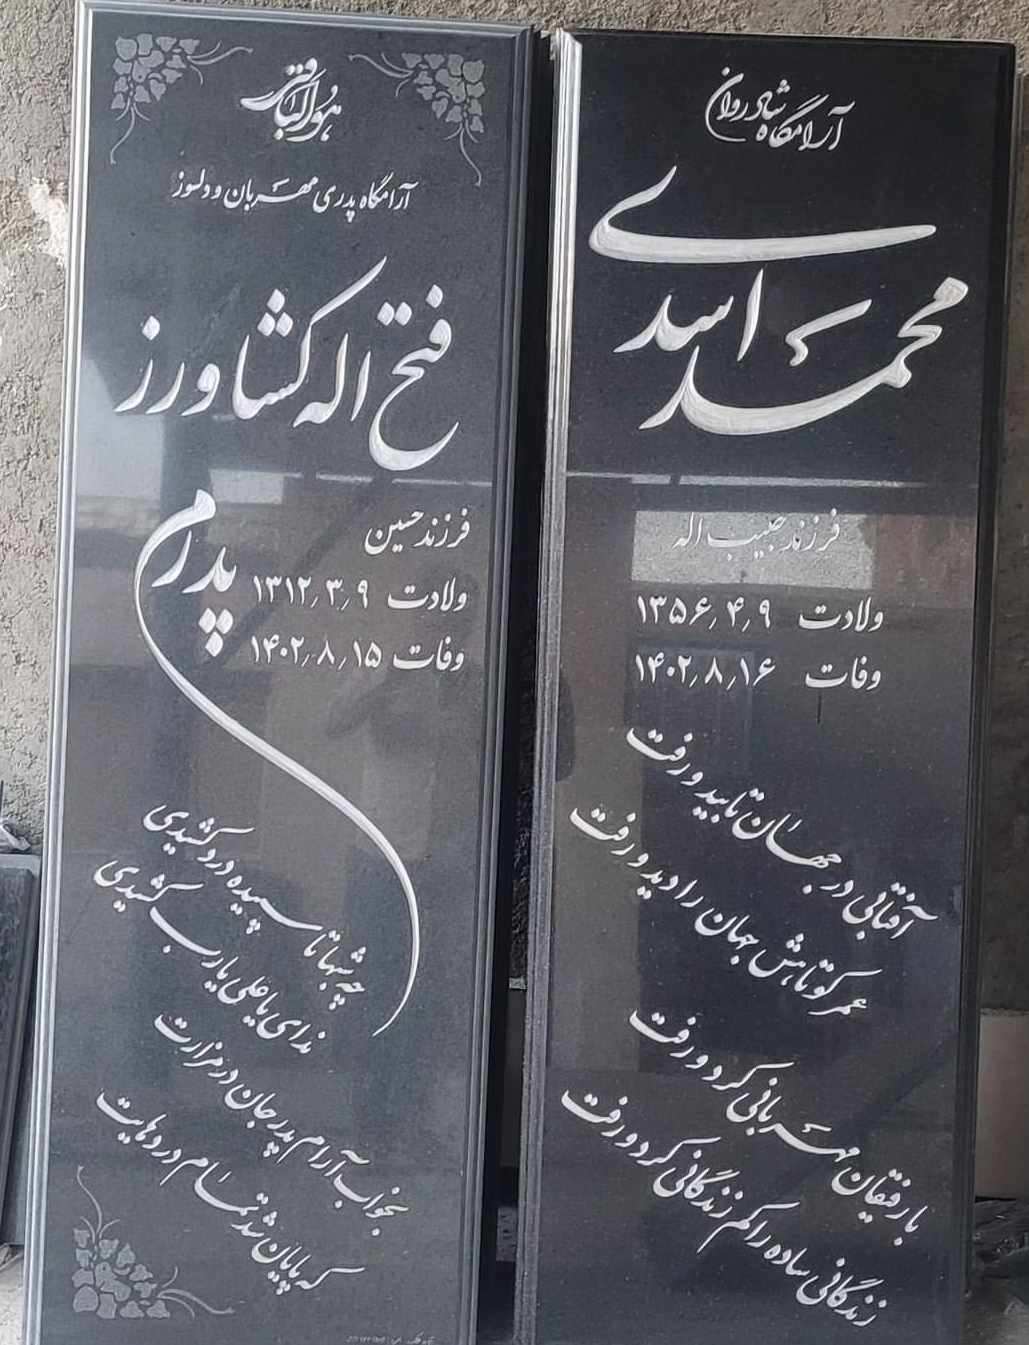 آرامگاه شادروان
محمد اسدی
فرزند حبیب اله
ولادت ۱۳۵۶٫۴٫۹
وفات ۱۴۰۲٫۸٫۱۶
آفتابی در جهان تابید و رفت
عمر کوتاهش جهان را دید و رفت
با رفیقان مهربانی کرد و رفت
زندگانی ساده را کم زندگانی کرد و رفت
هوالباقی
آرامگاه پدری مهربان و دلسوز
فتح اله کشاورز
فرزند حسین
ولادت ۱۳۱۲٫۳٫۹
وفات ۱۴۰۲٫۸٫۱۵
پدرم
چه شبها تا سپیده درد کشیدی
ندای یا علی یا رب کشیدی
بخواب آرام پدر جان در مزارت
که پایان شد تمام دردهایت